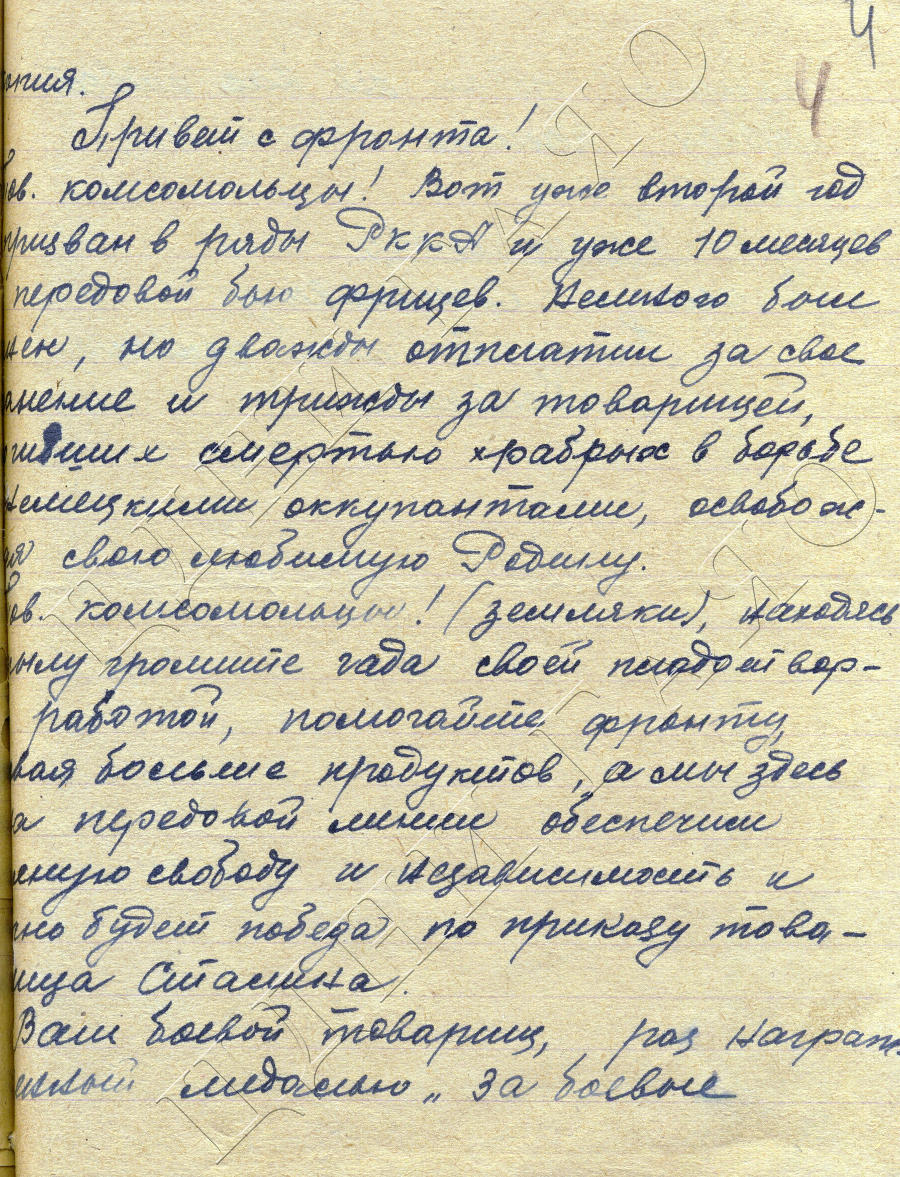 4
4
ония.
Привет с фронта!
ов. комсомольцы! Вот уже второй год
призван в ряды РККА и уже 10 месяцев
передовой бью фрицев. Немного был
нен, но дважды отплатил за свое
анение и трижды за товарищей,
гибших смертью храбрых в борьбе
немецкими оккупантами, освобож-
ая свою любимую Родину.
ов. комсомольцы! (земляки), находясь
ылу громите гада своей плодотвор-
работой, помогайте фронту,
вая больше продуктов, а мы здесь
а передовой линии обеспечим
лную свободу и независимость и
но будет победа по приказу това-
ища Сталина.
Ваш боевой товарищ, раз награж-
енный медалью „За боевые